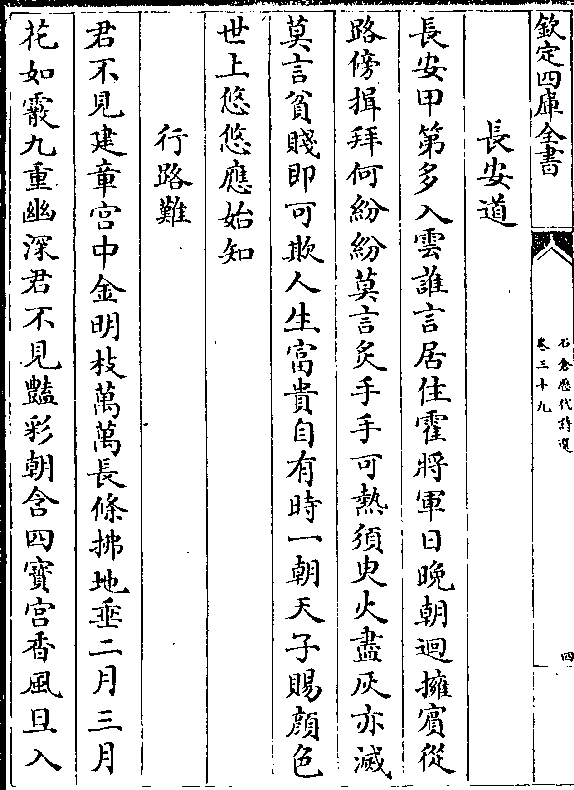 欽定四庫全書
石倉歷代詩選
卷三十九
四
長安道
長安甲第多入雲誰言居住霍將軍日晚朝迴擁賓從
路傍揖拜何紛紛莫言炙手手可熱須臾火盡灰亦滅
莫言貧賤即可欺人生富貴自有時一朝天子賜顔色
世上悠悠應始知
行路難
君不見建章宫中金明枝萬萬長條拂地垂二月三月
花如霰九重幽深君不見豔彩朝含四寳宫香風旦入